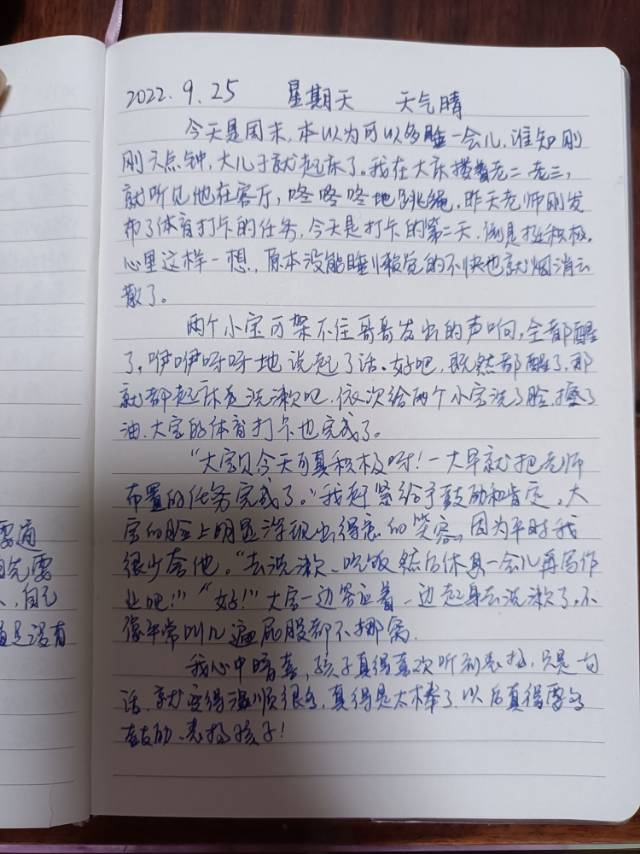 2022.9.25 星期天 天气晴
今天是周末,本以为可以多睡一会儿,谁知刚
刚六点钟,大儿子就起床了。我在大床搂着老二老三,
就听见他在客厅,咚咚咚地跳绳,昨天老师刚发
布了体育打卡的任务,今天是打卡的第二天,倒是挺积极。
心里这样一想,原本没能睡懒觉的不快也就烟消云
散了。
两个小宝可架不住哥哥发出的声响,全都醒
了,咿咿呀呀地说起了话。好吧,既然都醒了,那
就都起床去洗漱吧,依次给两个小宝洗了脸,擦了
油,大宝的体育打卡也完成了。
“大宝贝今天可真积极呀!一大早就把老师
布置的任务完成了。”我赶紧给予鼓励和肯定。大
宝的脸上明显浮现出得意的笑容,因为平时我
很少夸他。“去洗漱、吃饭然后休息一会儿再写作
业吧!”“好!”大宝一边答应着,一边起身去洗漱了,不
像平常叫几遍屁股都不挪窝。
我心中暗喜,孩子真得喜欢听到表扬,只是句
话,就变得温顺很多,真得是太棒了,以后真得要多
鼓励、表扬孩子!
需通
完需
,自己
是没有